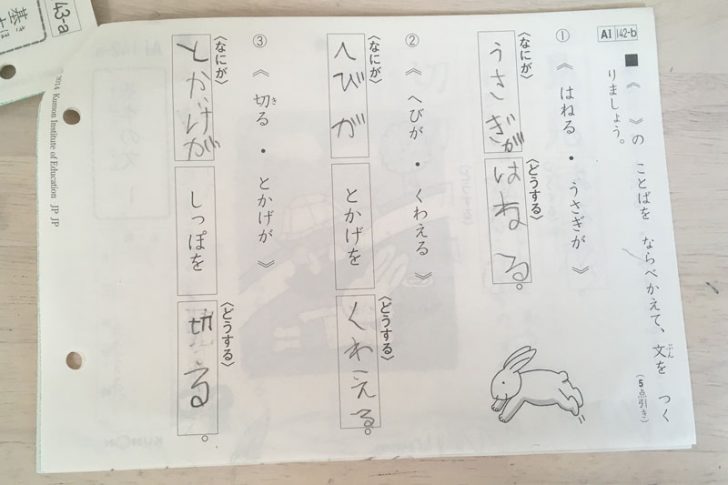 AI 142-b
■《　》の ことばを ならべかえて、文を つく
ぶん
りましょう。
(5点引き)
① 《 はねる ・ うさぎが 》
〈なにが〉
うさぎが
〈どうする〉
はねる。
② 《 へびが ・ くわえる 》
〈なにが〉
へびが
とかげを
〈どうする〉
くわえる。
③ 《 切る ・ とかげが 》
き
〈なにが〉
とかげが
しっぽを
〈どうする〉
切る。
©2014 Kumon Institute of Education JP JP
43-a
基
き